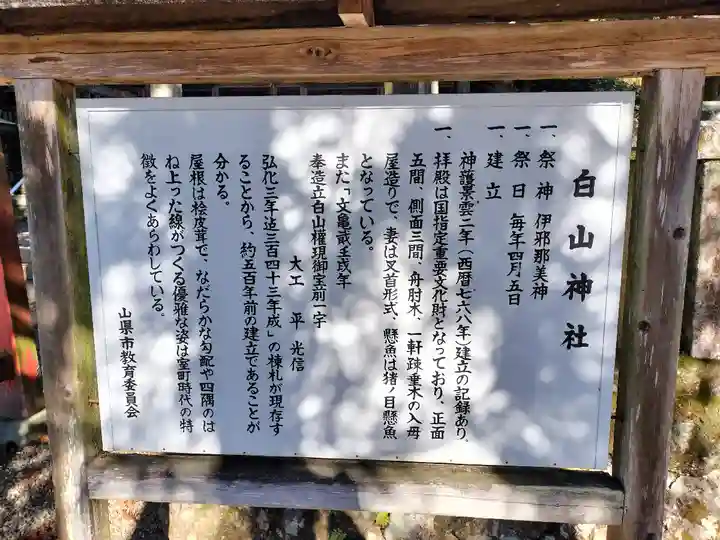 白山神社
一、祭神 伊邪那美神
一、祭日 毎年四月五日
一、建立
神護景雲二年（西暦七六八年）建立の記録あり、
一、拝殿は国指定重要文化財となっており、正面
五間、側面三間、舟肘木、一軒疎垂木の入母
屋造りで、妻は叉首形式、懸魚は猪ノ目懸魚
となっている。
また「文亀貮壬戌年
奉造立白山權現御宝前一宇
大工 平 光信
弘化三年迄三百四十三年成」の棟札が現存す
ることから、約五百年前の建立であることが
分かる。
屋根は桧皮葺で、なだらかな勾配や四隅のは
ね上った線がつくる優雅な姿は室町時代の特
徴をよくあらわしている。
山県市教育委員会